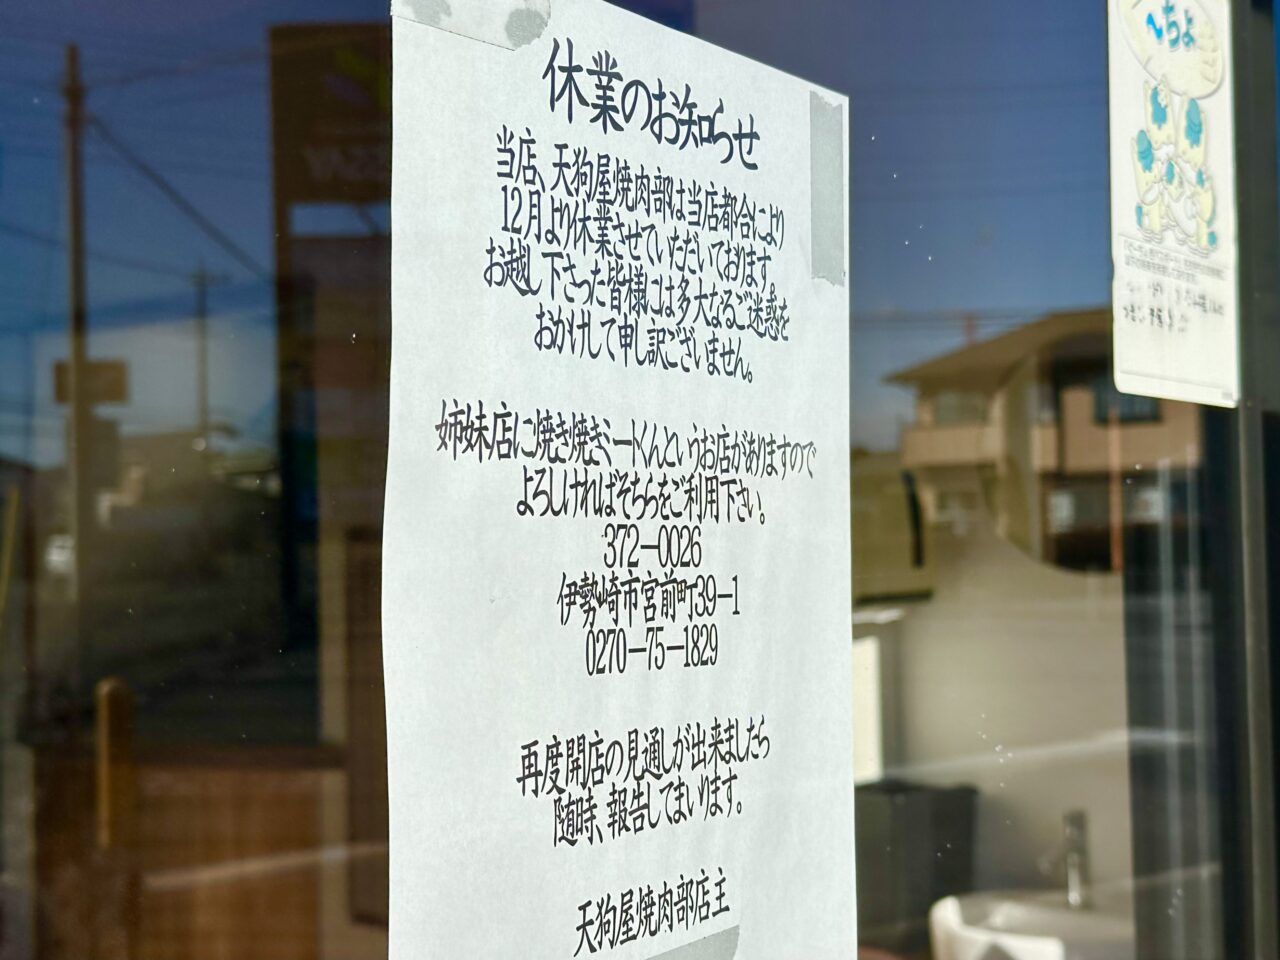 休業のお知らせ
当店、天狗屋焼肉部は当店都合により
12月より休業させていただいております。
お越し下さった皆様には多大なるご迷惑を
おかけして申し訳ございません。
姉妹店に焼き焼きミートくんというお店がありますので
よろしければそちらをご利用下さい。
372－0026
伊勢崎市宮前町39－1
0270－75－1829
再度開店の見通しが出来ましたら
随時、報告してまいります。
天狗屋焼肉部店主
ちょ